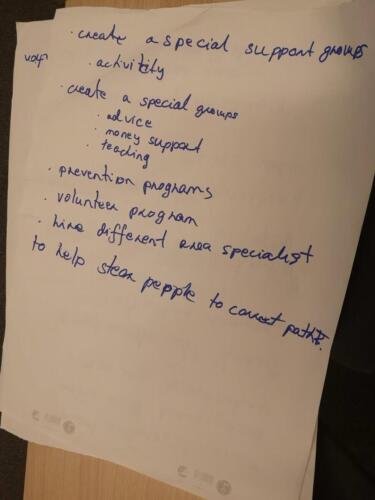 · create a special support groups
· activitity
· create a special groups
· advice
· money support
· teaching
· prevention programs
· volunteer program
· hire different area specialist
to help stear people to correct path